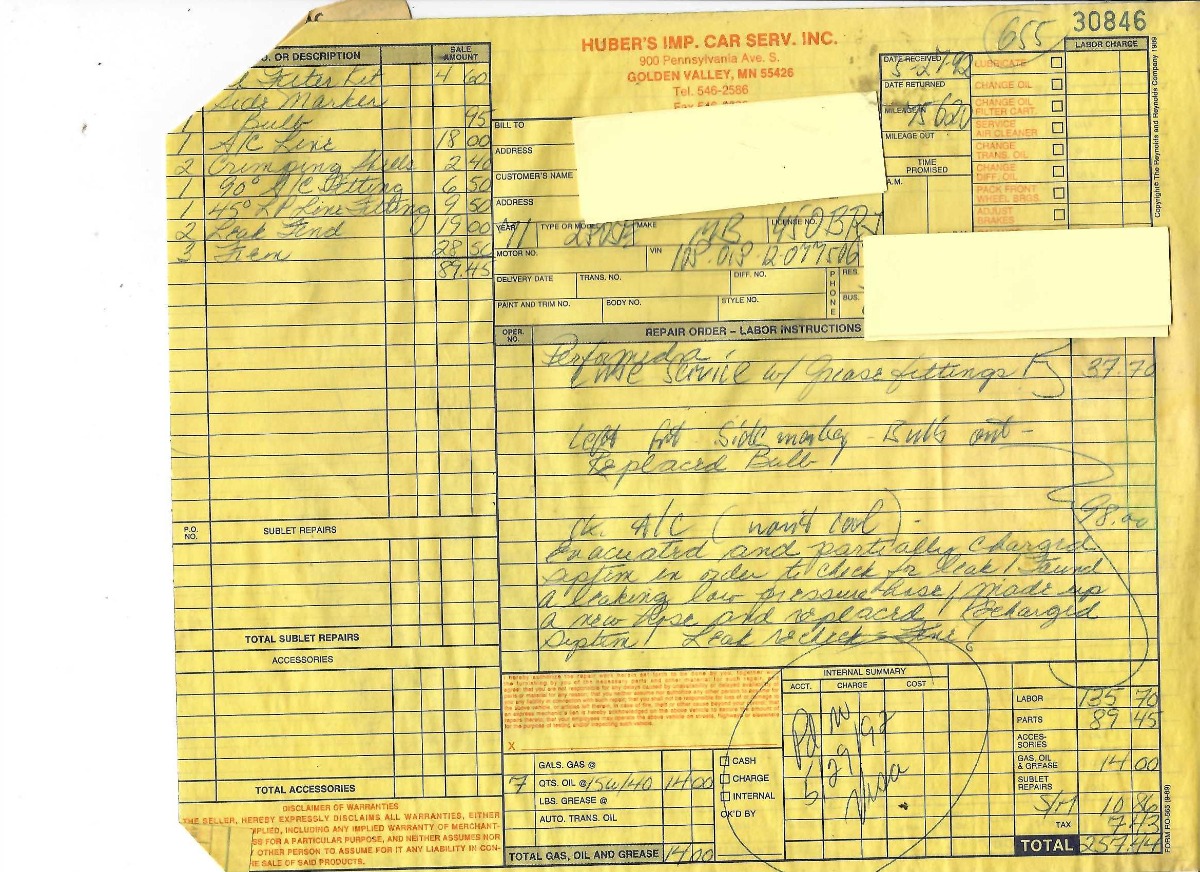 655
30846
O. OR DESCRIPTION
SALE AMOUNT
Filter Kit 4 60
Side Marker
Bulb 95
1 A/C Line 18 00
2 Crimping Shells 2 40
1 90° A/C Fitting 6 50
1 45° LP Line Fitting 9 50
2 Leak Find 19 00
3 Freon 28 50
89.45
P.O. NO.
SUBLET REPAIRS
TOTAL SUBLET REPAIRS
ACCESSORIES
TOTAL ACCESSORIES
DISCLAIMER OF WARRANTIES
THE SELLER, HEREBY EXPRESSLY DISCLAIMS ALL WARRANTIES, EITHER
MPLIED, INCLUDING ANY IMPLIED WARRANTY OF MERCHANT-
SS FOR A PARTICULAR PURPOSE, AND NEITHER ASSUMES NOR
OTHER PERSON TO ASSUME FOR IT ANY LIABILITY IN CON-
HE SALE OF SAID PRODUCTS.
HUBER'S IMP. CAR SERV. INC.
900 Pennsylvania Ave. S.
GOLDEN VALLEY, MN 55426
Tel. 546-2586
BILL TO
ADDRESS
CUSTOMER'S NAME
ADDRESS
YEAR 71 TYPE OR MODEL MAKE MB LICENSE NO. 450 BRJ
MOTOR NO. VIN
DELIVERY DATE TRANS. NO. DIFF. NO.
PAINT AND TRIM NO. BODY NO. STYLE NO.
PHONE
RES.
BUS.
DATE RECEIVED
5-27-92
DATE RETURNED
MILEAGE IN
95620
MILEAGE OUT
TIME PROMISED
A.M.
LABOR CHARGE
LUBRICATE
CHANGE OIL
CHANGE OIL FILTER CART.
SERVICE AIR CLEANER
CHANGE TRANS. OIL
CHANGE DIFF OIL
PACK FRONT WHEEL BRGS.
ADJUST BRAKES
Copyright© The Reynolds and Reynolds Company 1989
OPER. NO.
REPAIR ORDER – LABOR INSTRUCTIONS
Performed a
Service w/ Grease fittings 37.70
Left frt Side marker - Bulb out -
Replaced Bulb
Ck. A/C (won't cool) - 98.00
Evacuated and partially charged
System in order to check for leak / Found
a leaking low pressure hose / made up
a new hose and replaced / Recharged
System / Leak recheck Fine
X
7
GALS. GAS @
QTS. OIL @ 15w/40 14 00
LBS. GREASE @
AUTO. TRANS. OIL
TOTAL GAS, OIL AND GREASE 14 00
CASH
CHARGE
INTERNAL
OK'D BY
INTERNAL SUMMARY
ACCT. CHARGE COST
Pd
5/29/92
Visa
LABOR 135 70
PARTS 89 45
ACCES-SORIES
GAS, OIL & GREASE 14 00
SUBLET REPAIRS
S/M 10 86
TAX 7.43
TOTAL 257.44
FORM RO-565 (9-89)